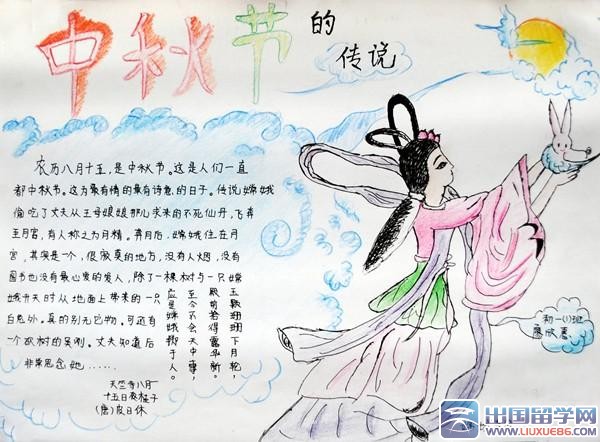 中秋节
的
传说
农历八月十五，是中秋节。这是人们一直
都中秋节。这为最有情的最有诗意的日子。传说嫦娥
偷吃了丈夫从王母娘娘那儿求来的不死仙丹，飞奔
至月宫，有人称之为月精。奔月后，嫦娥住在月
宫，其实是一个很寂寞的地方，没有人烟，没有
图书也没有最心爱的爱人，除了一棵树与一只嫦
娥升天时从地面上带来的一只
白兔外，真的别无它物。可还有
一个砍树的吴刚。丈夫知道后
非常思念她……
天竺寺八月
十五日夜桂子
(唐)皮日休
玉颗珊珊下月轮，
殿前拾得露华新。
至今不会天中事，
应是嫦娥掷于人。
初一(1)班
出国留学网
www.liuxue86.com